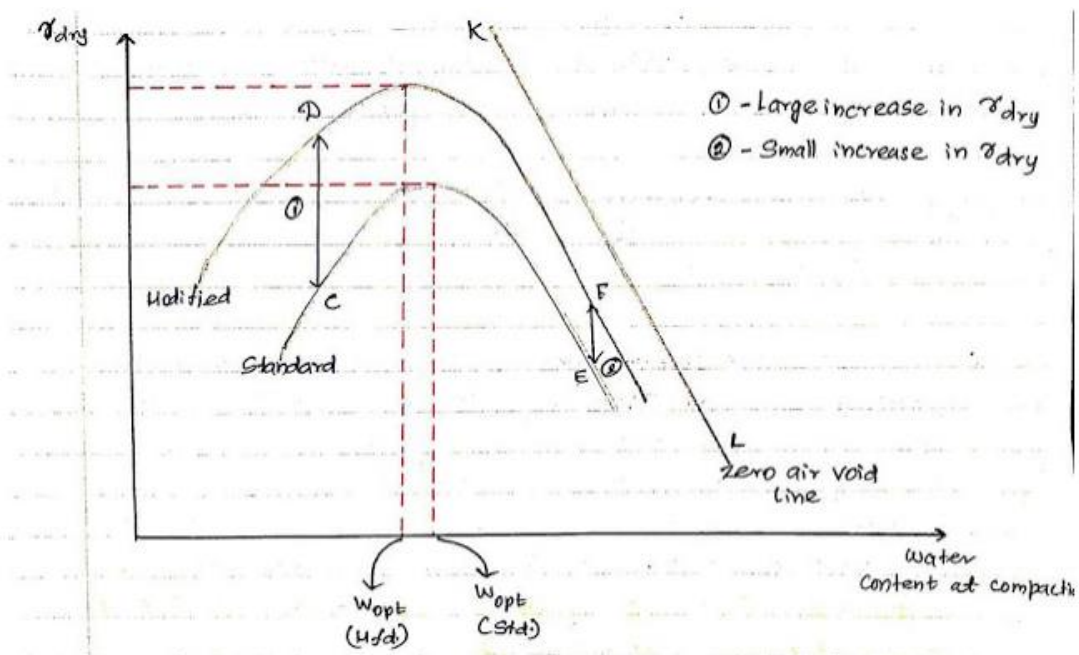 γdry
K
① - Large increase in γdry
② - Small increase in γdry
D
①
C
Modified
Standard
F
E ②
L
Zero air void
line
Water
Content at compacti
Wopt
(Mfd.)
Wopt
(Std.)